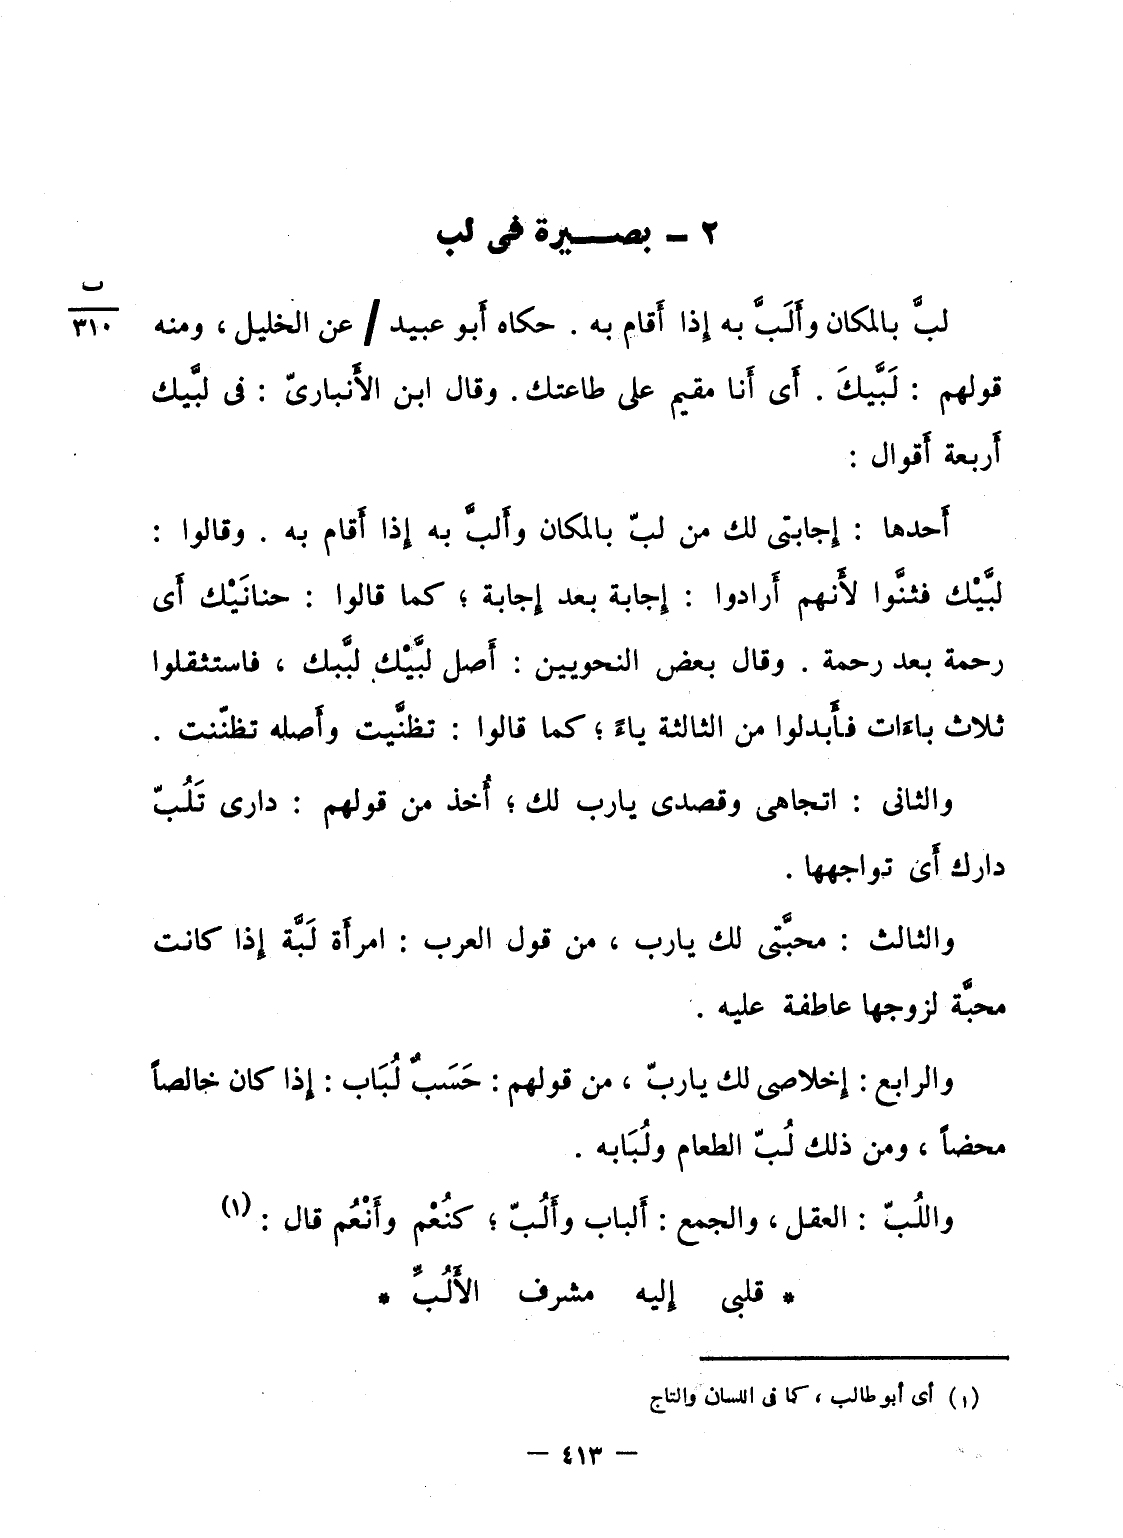 ٢ ــ بصـــيرة فى لب
ب
٣١٠
لبَّ بالمكان وأَلَبَّ به إِذا أَقام به . حكاه أَبو عبيد / عن الخليل ، ومنه
قولهم : لَبَّيكَ . أَى أَنا مقيم على طاعتك . وقال ابن الأَنبارىّ : فى لبَّيك
أَربعة أَقوال :
أَحدها : إِجابتى لك من لبّ بالمكان وأَلبَّ به إِذا أَقام به . وقالوا :
لبَّيْك فثنَّوا لأَنهم أَرادوا : إِجابة بعد إِجابة ؛ كما قالوا : حنانَيْك أَى
رحمة بعد رحمة . وقال بعض النحويين : أَصل لبَّيْك لبَّبك ، فاستثقلوا
ثلاث باءَات فأَبدلوا من الثالثة ياءً ؛ كما قالوا : تظنَّيت وأَصله تظنّنت .
والثانى : اتجاهى وقصدى يارب لك ؛ أُخذ من قولهم : دارى تَلُبّ
دارك أَى تواجهها .
والثالث : محبَّتى لك يارب ، من قول العرب : امرأَة لَبَّة إِذا كانت
محبَّة لزوجها عاطفة عليه .
والرابع : إِخلاصى لك ياربّ ، من قولهم : حَسَبٌ لُبَاب : إِذا كان خالصاً
محضاً ، ومن ذلك لُبّ الطعام ولُبَابه .
واللُبّ : العقل ، والجمع : أَلباب وأَلُبّ ؛ كنُعْم وأَنْعُم قال : (١)
* قلبى إِليه مشرف الأَلُبِّ *
(١) أى أبو طالب ، كما فى اللسان والتاج
— ٤١٣ —